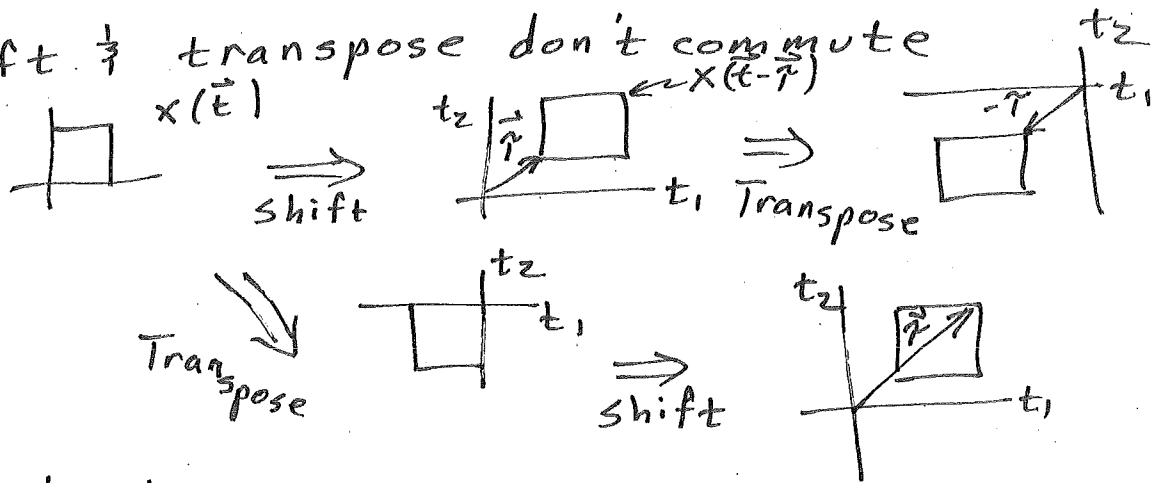 ft. & transpose don't commute
x(t⃗)
t₂
τ⃗
x(t⃗-τ⃗)
t₁
shift
Transpose
t₂
t₁
-τ
Transpose
t₂
t₁
shift
t₂
τ⃗
t₁